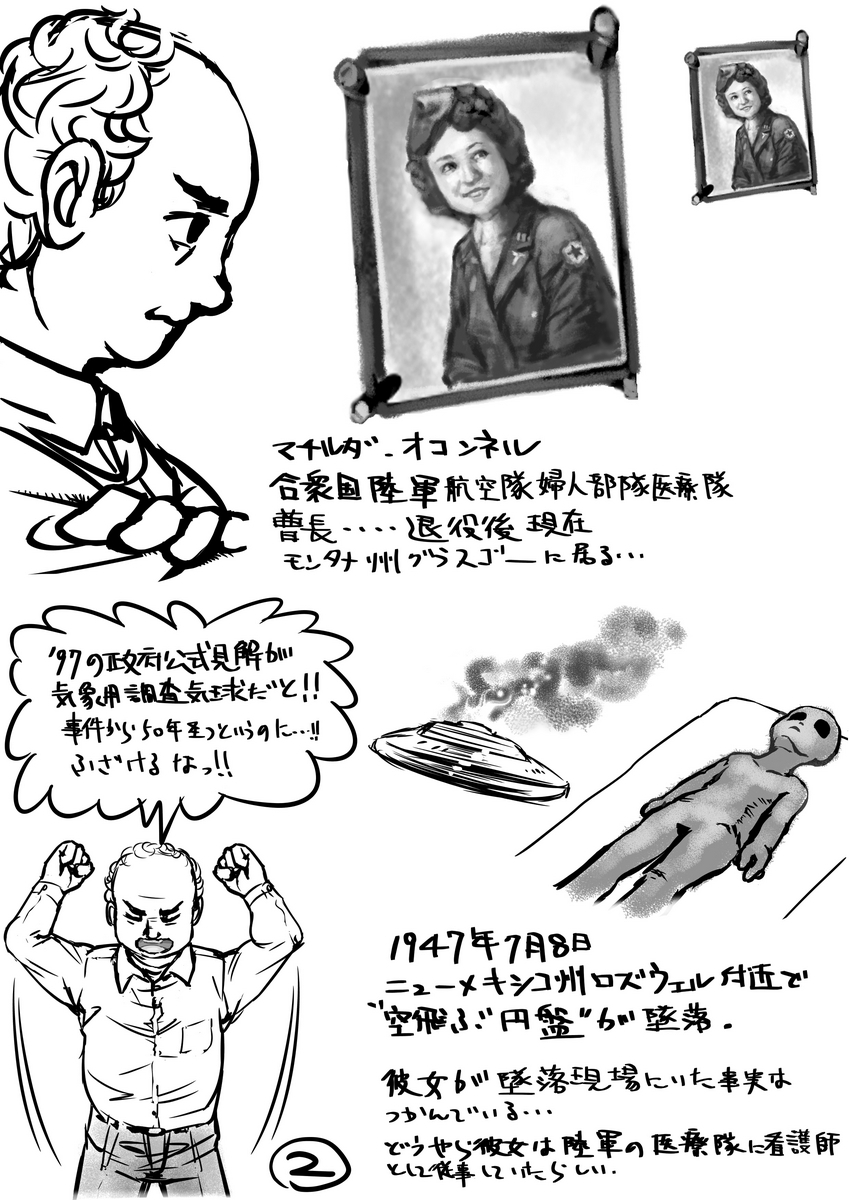 マチルダ・オコンネル
合衆国陸軍航空隊婦人部隊医療隊
曹長‥‥退役後現在
モンタナ州グラスゴーに居る…
'97の政府公式見解が
気象用調査気球だと!!
事件から50年至つというのに…!!
ふざけるなっ!!
1947年7月8日
ニューメキシコ州ロズウェル付近で
"空飛ぶ円盤"が墜落。
彼女が墜落現場にいた事実は
つかんでいる…
どうやら彼女は陸軍の医療隊に看護師
として従事していたらしい.
2